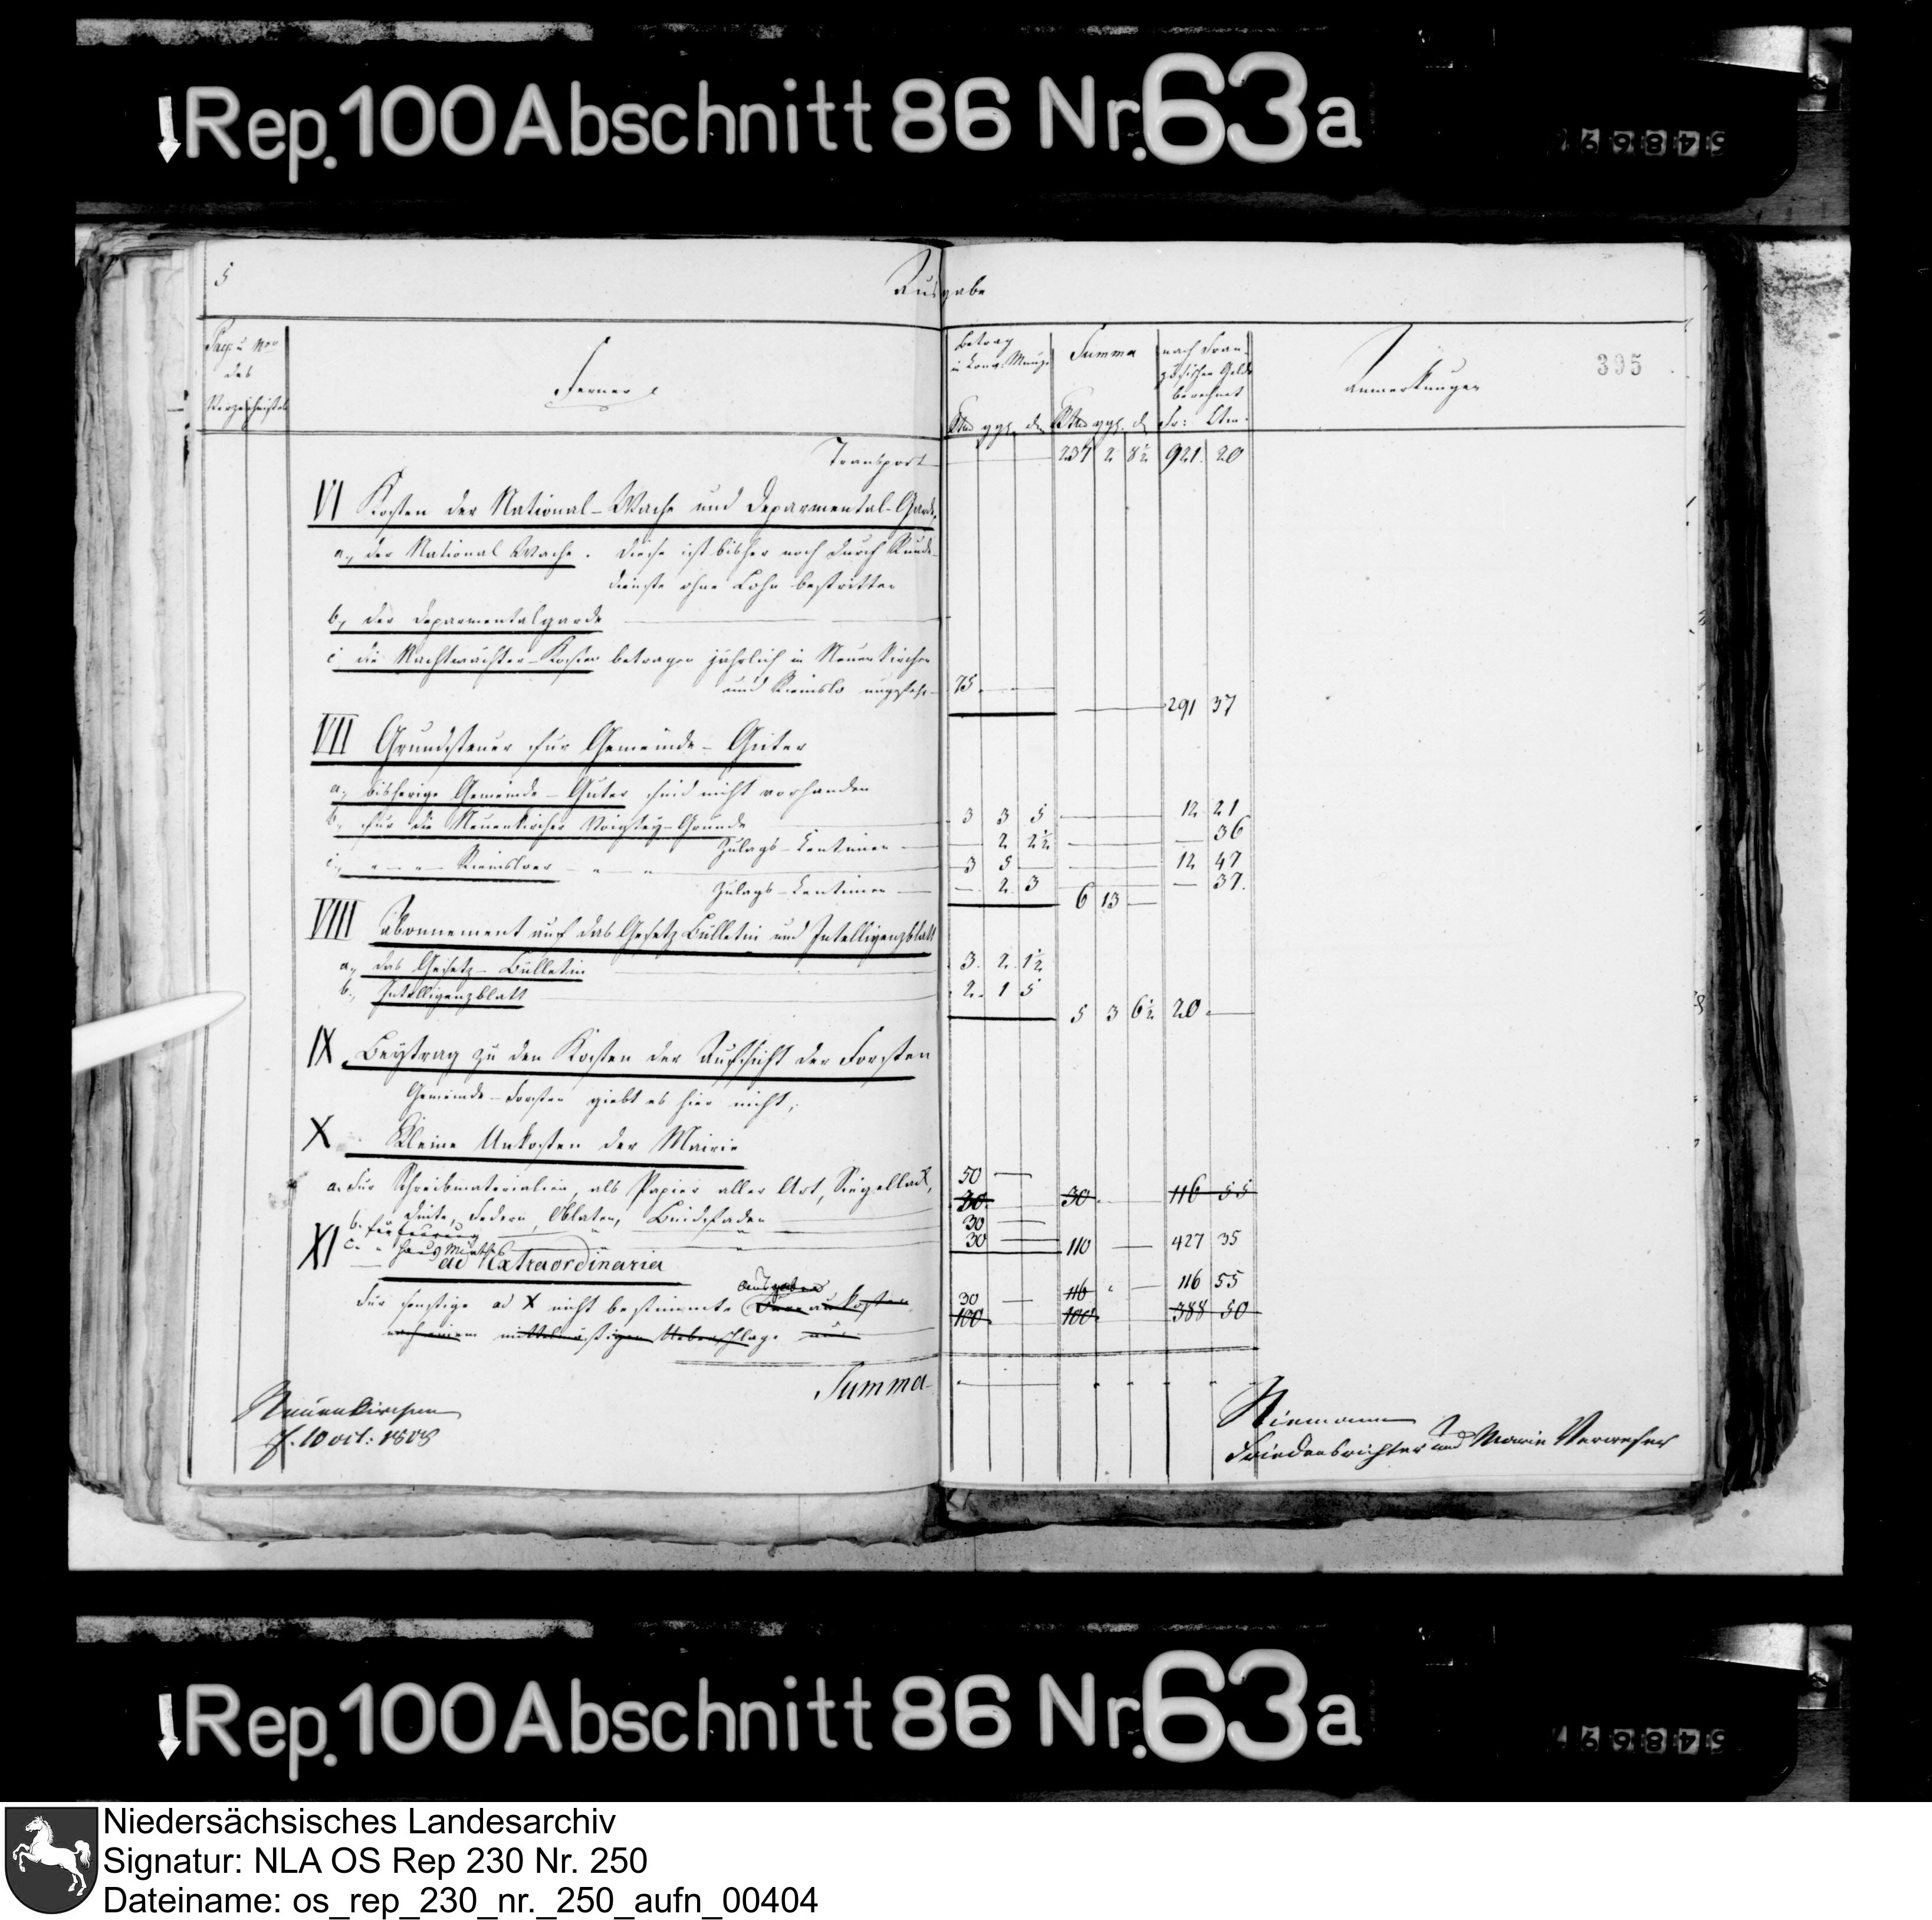 Rep. 100 Abschnitt 86 Nr. 63a
5
Ausgabe
395
Pag: u Nro
des
Ferner
Betrag
in Conv. Münze
Summa
nach Fran-
zösischen Gelde
berechnet
Anmerkungen
Rthlr ggl. d. Rthlr ggl. d. Fr: Ctm:
Transport 237 2 8½ 921. 20
VI Kosten der National-Wache und Deparmental-Garde,
a., der National Wache. Diese ist bisher noch durch Runde-
dienste ohne Lohn bestritten
b., der Deparmentalgarde
c die Nachtwächter-Kosten betragen jährlich in Neuenkirchen
und Riemslo ungefehr 75. 291 37
VII Grundsteuer für Gemeinde-Güter
a., bisherige Gemeinde-Güter sind nicht vorhanden
b., für die Neuenkircher Voigtey-Gründe 3 3 5 12 21
Zulags-Centimen 2 2½ 36
c., " " Riemsloer " " 3 5 12 47
Zulags-Centimen 2 3 6 13 37.
VIII Abonnement auf das Gesetz Bülletin und Intelligenzblatt
a., das Gesetz-Bülletin 3. 2. 1½
b., Intelligenzblatt 2. 1 5
5 3 6½ 20
IX Beytrag zu den Kosten der Aufsicht der Forsten
Gemeinde-Forsten giebt es hier nicht,
X Kleine Unkosten der Mairie
a. Für Schreibmaterialien, als Papier aller Art, Siegellack, 50
30. 30. 116 55
Dinte, Federn, Oblaten, Bindfaden
b. für Feurung " " 30
c. " Haus Miethe " " 30 110 427 35
XI ad Extraordinaria
Ausgaben
116 55
Für sonstige ad X nicht bestimmte 30 116
100. 100. 388 50
nach einem mittelmäßigen Ueberschlage
Summa
Neuenkirchen
d. 10 oct: 1808
Niemann
Friedensrichter und Marie Verweser
Rep. 100 Abschnitt 86 Nr. 63a
Niedersächsisches Landesarchiv
Signatur: NLA OS Rep 230 Nr. 250
Dateiname: os_rep_230_nr._250_aufn_00404